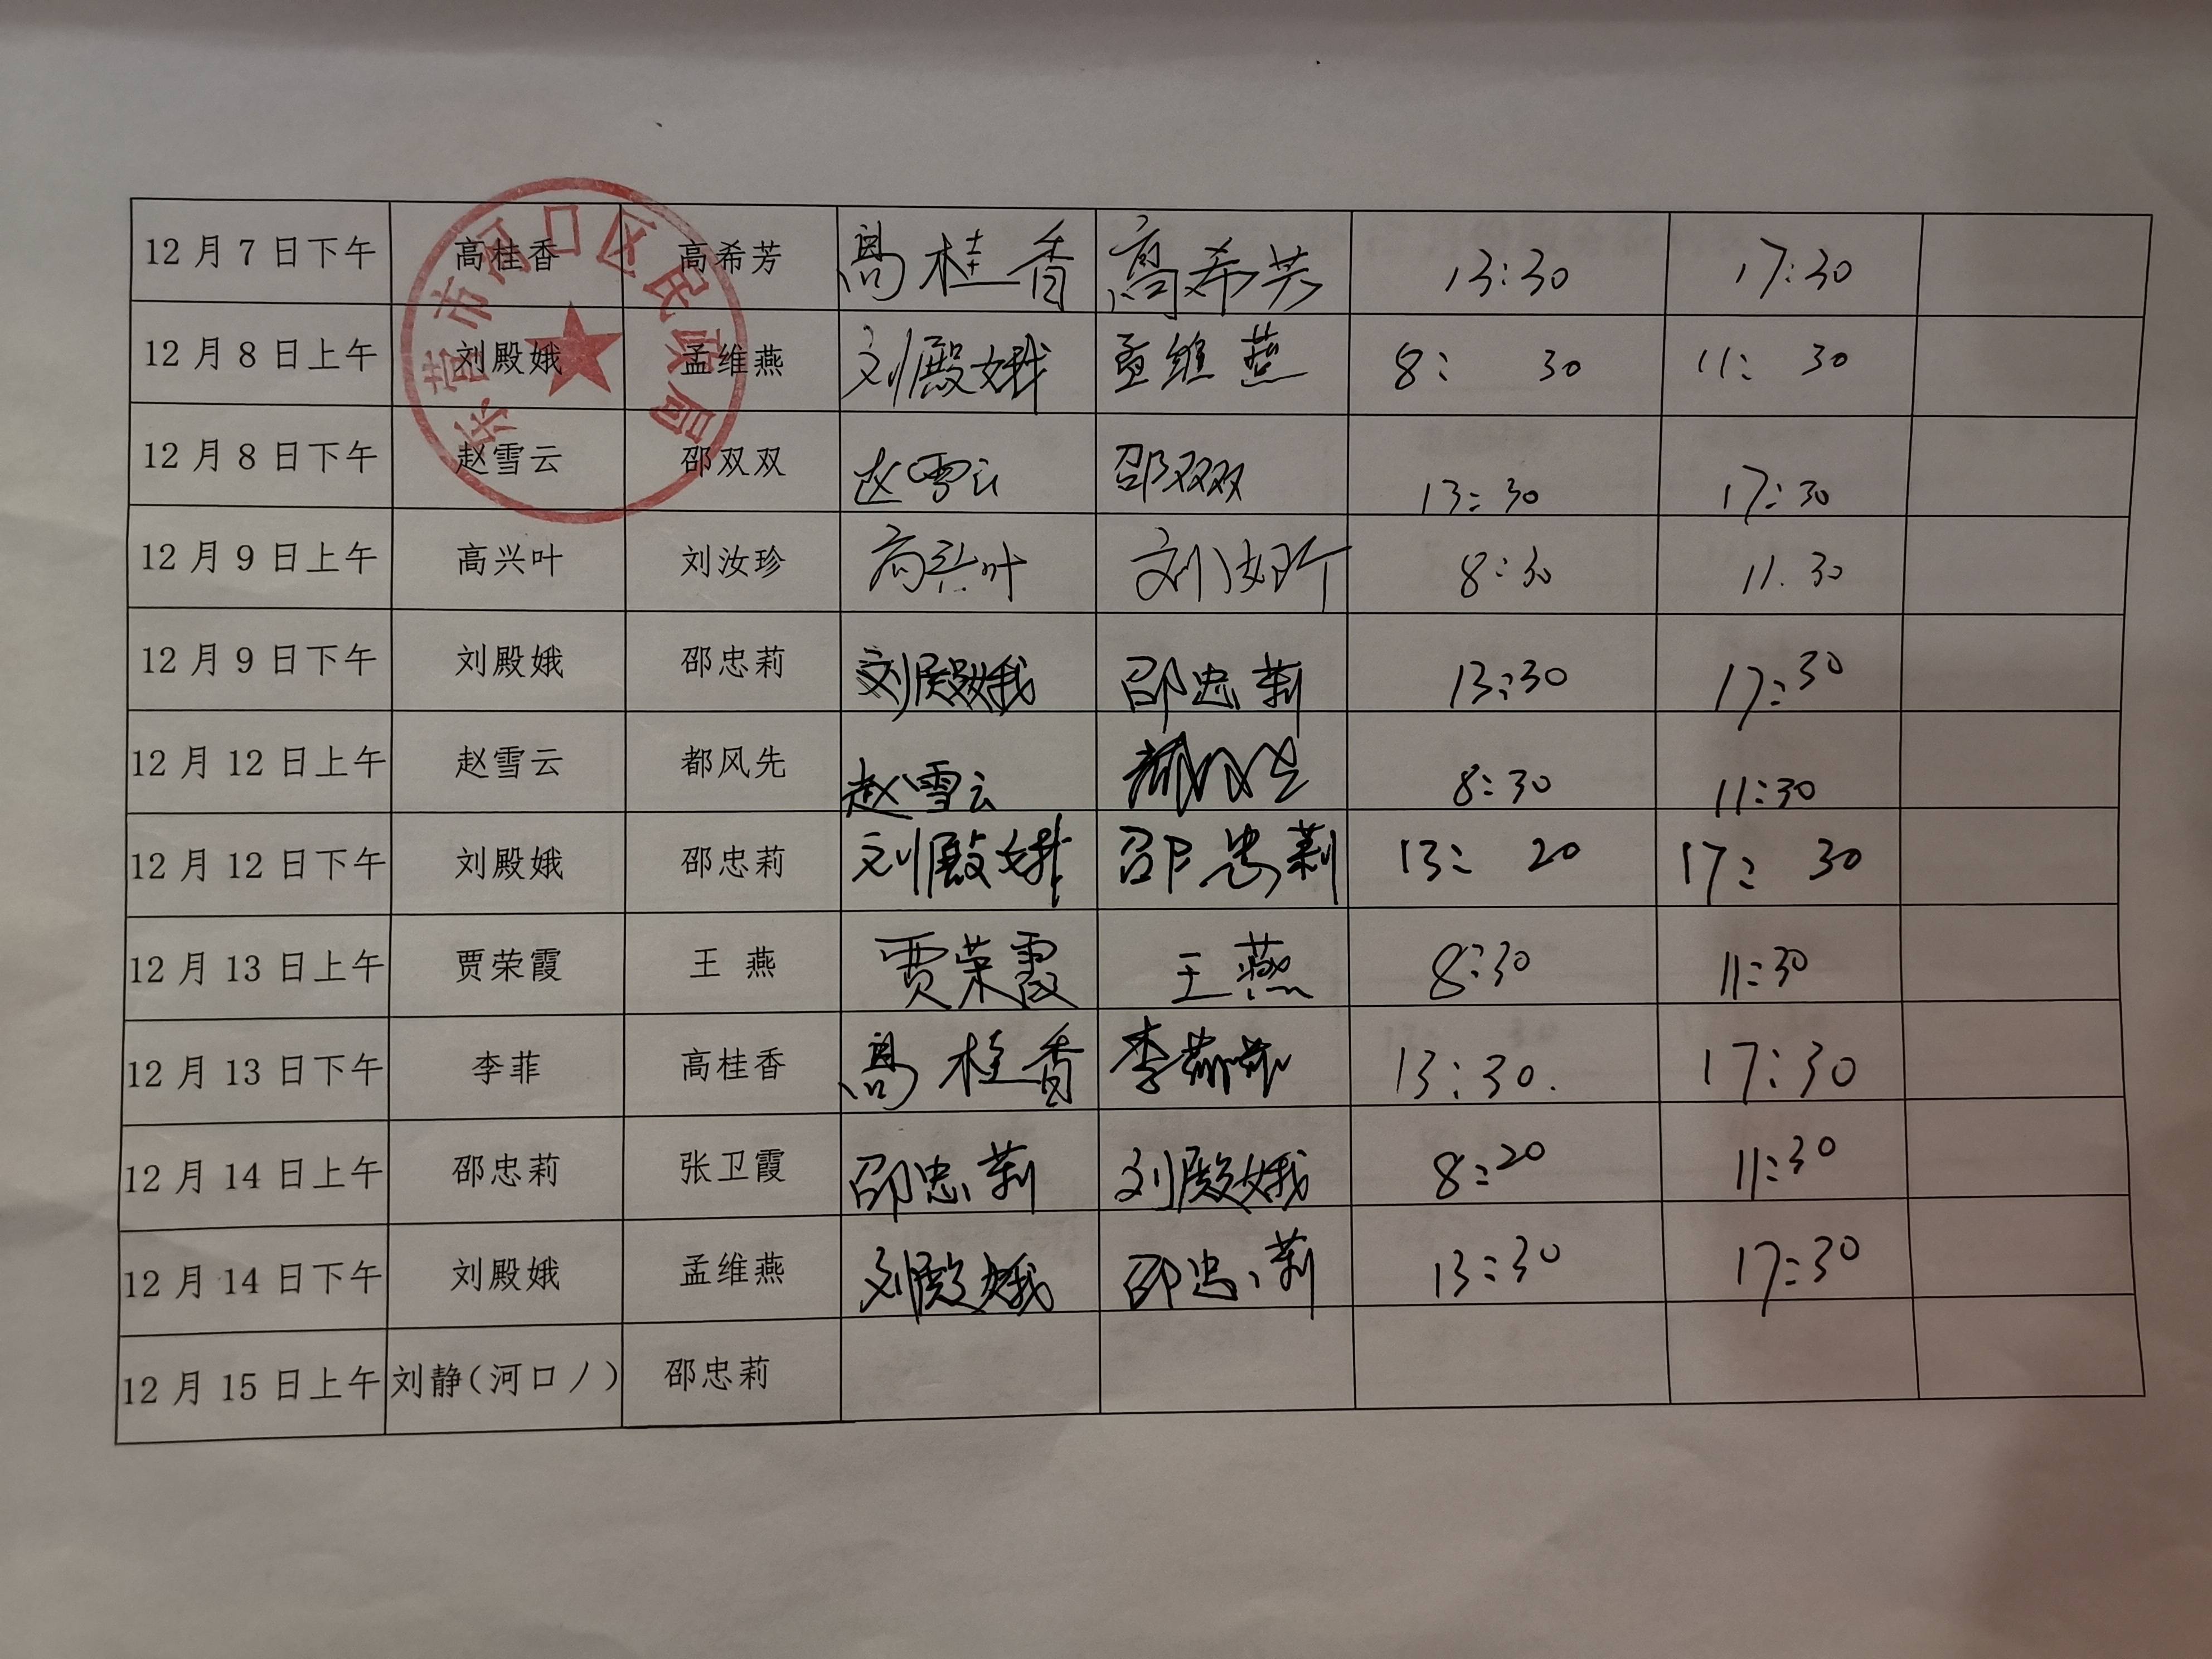 东营市河口区民政局
12月7日下午 高桂香 高希芳 高桂香 高希芳 13:30 17:30
12月8日上午 刘殿娥 孟维燕 刘殿娥 孟维燕 8:30 11:30
12月8日下午 赵雪云 邵双双 赵雪云 邵双双 13:30 17:30
12月9日上午 高兴叶 刘汝珍 高兴叶 刘汝珍 8:30 11.30
12月9日下午 刘殿娥 邵忠莉 刘殿娥 邵忠莉 13:30 17:30
12月12日上午 赵雪云 都风先 赵雪云 都风先 8:30 11:30
12月12日下午 刘殿娥 邵忠莉 刘殿娥 邵忠莉 13:20 17:30
12月13日上午 贾荣霞 王 燕 贾荣霞 王燕 8:30 11:30
12月13日下午 李菲 高桂香 高桂香 李 13:30. 17:30
12月14日上午 邵忠莉 张卫霞 邵忠莉 刘殿娥 8:20 11:30
12月14日下午 刘殿娥 孟维燕 刘殿娥 邵忠莉 13:30 17:30
12月15日上午 刘静(河口) 邵忠莉